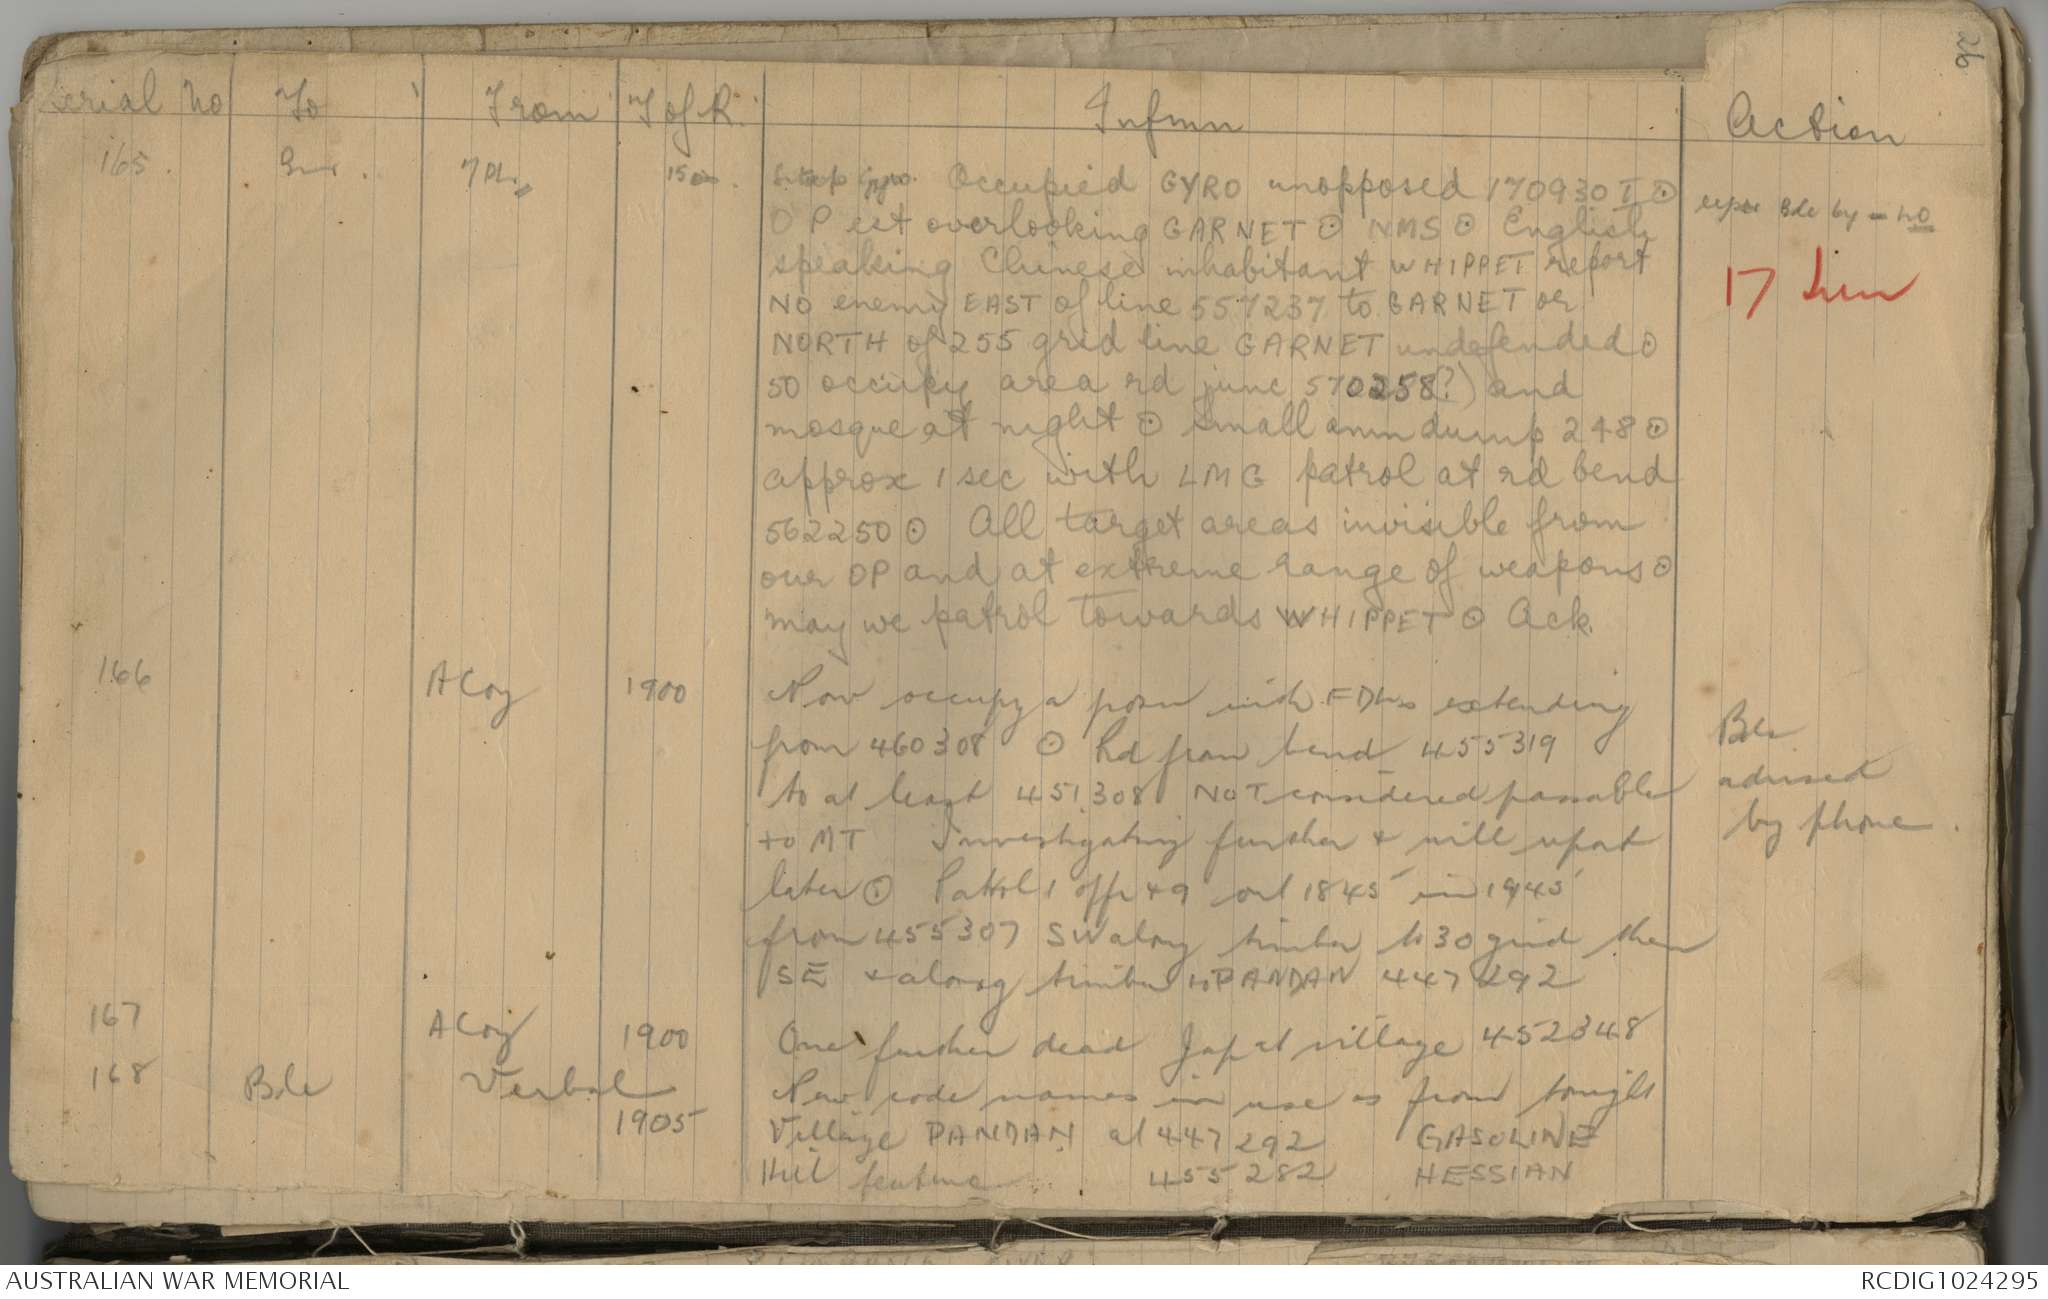 26
Serial No To From T of R. Infmn Action
165. 7 Pl. 1500. Occupied GYRO unopposed 170930 I ⊙
OP est overlooking GARNET ⊙ NMS ⊙ English
speaking Chinese inhabitant WHIPPET report
NO enemy EAST of line 557237 to GARNET or
NORTH of 255 grid line GARNET undefended ⊙
50 occupy area rd junc 570258(?) and
mosque at night ⊙ Small amm dump 248 ⊙
approx 1 sec with LMG patrol at rd bend
562250 ⊙ All target areas invisible from
our OP and at extreme range of weapons ⊙
may we patrol towards WHIPPET ⊙ Ack.
Bde by
17 Jun
166 A Coy 1900 Now occupy a posn with FDLs extending
from 460308 ⊙ Rd from bend 455319
to at least 451308 NOT considered passable
to MT Investigating further & will report
later ⊙ Patrol 1 offr & 9 out 1845 in 1945
from 455307 SW along timber to 30 grid then
SE & along timber to PANDAN 447292
Bde
advised
by phone.
167 A Coy 1900 One further dead Jap at village 452348
168 Bde Verbal New code names in use as from tonight
1905 Village PANDAN at 447292 GASOLINE
Hill feature 455282 HESSIAN
AUSTRALIAN WAR MEMORIAL RCDIG1024295